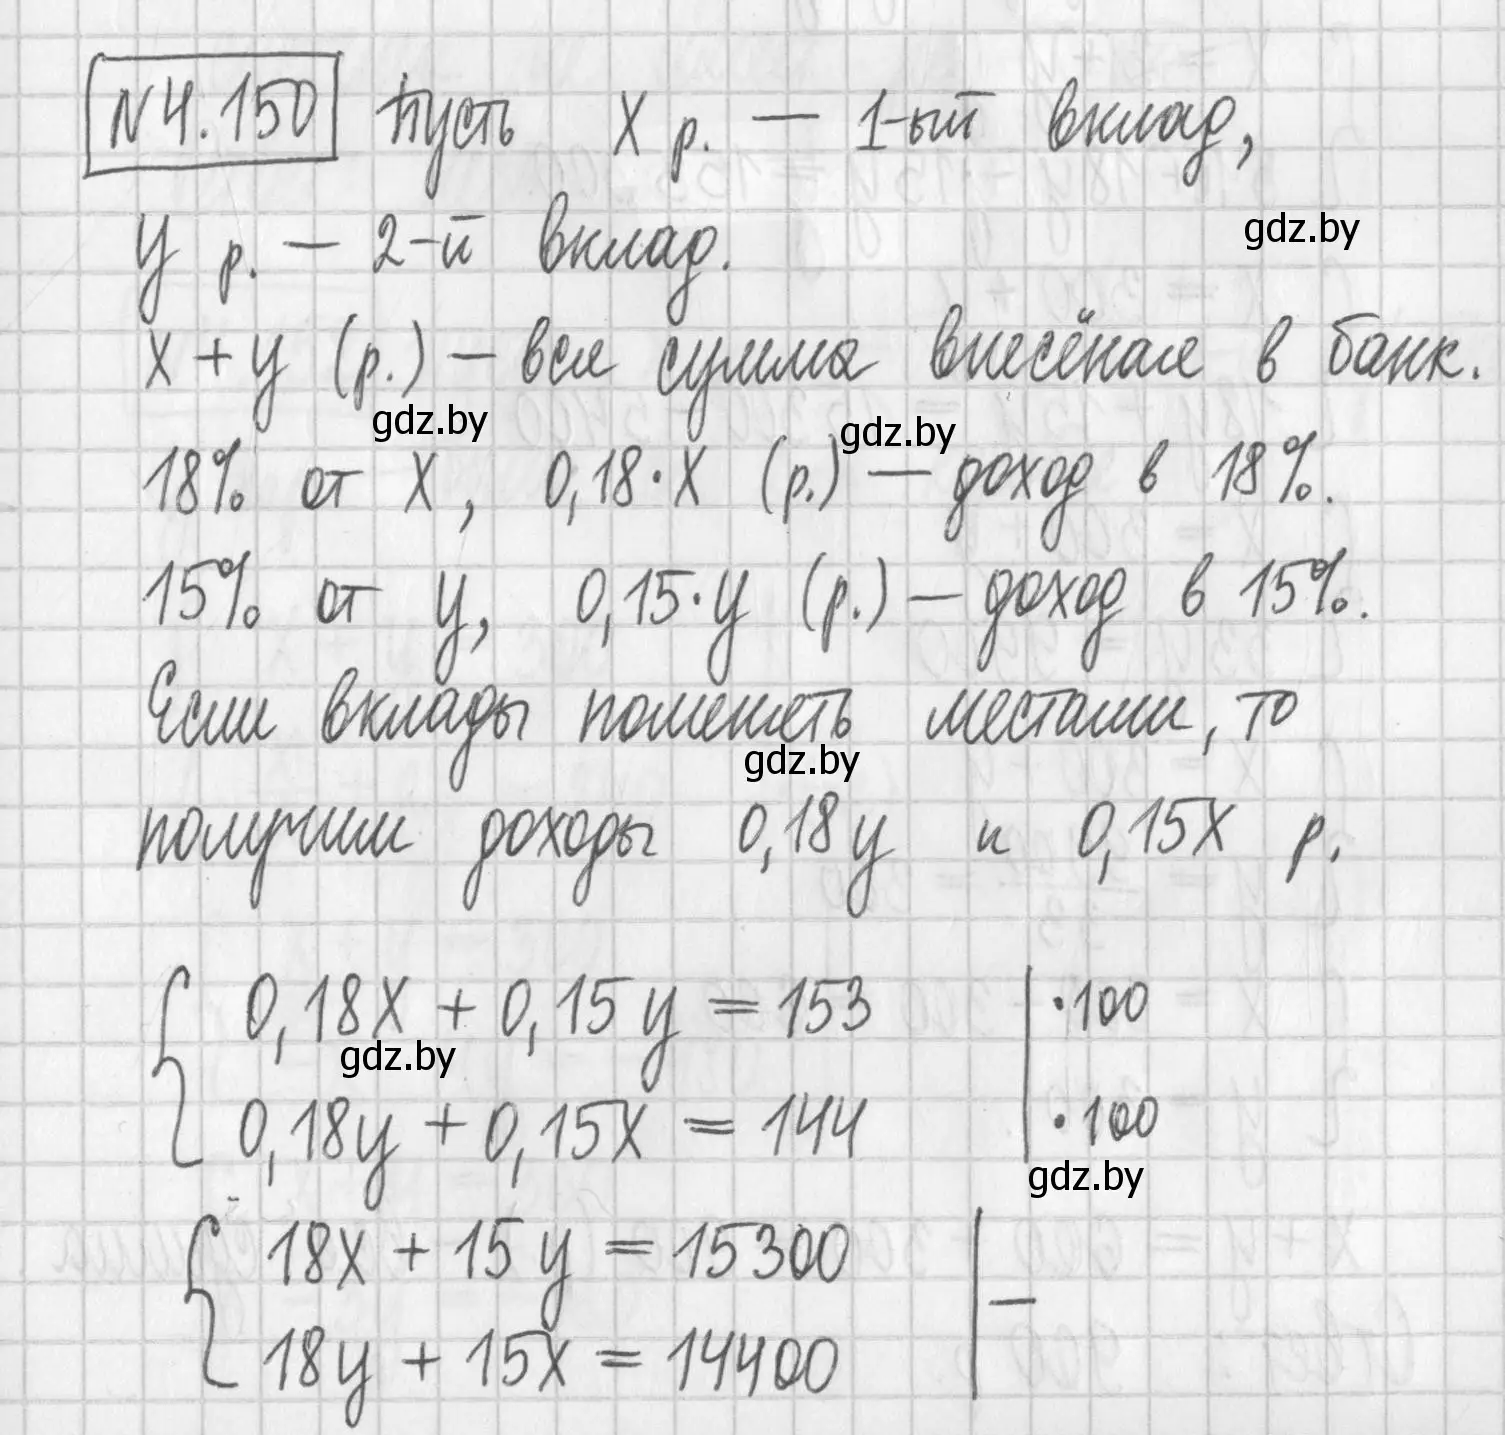 N 4.150 Пусть x р. — 1-ый вклад,
gdz.by
y р. — 2-й вклад.
x + y (р.) — вся сумма внесёная в банк.
gdz.by gdz.by
18% от x, 0,18·x (р.) — доход в 18%.
15% от y, 0,15·y (р.) — доход в 15%.
Если вклады поменять местами, то
gdz.by
получим доходы 0,18y и 0,15x р.
{ 0,18x + 0,15y = 153 | ·100
gdz.by
0,18y + 0,15x = 144 | ·100
gdz.by
{ 18x + 15y = 15300 | –
18y + 15x = 14400